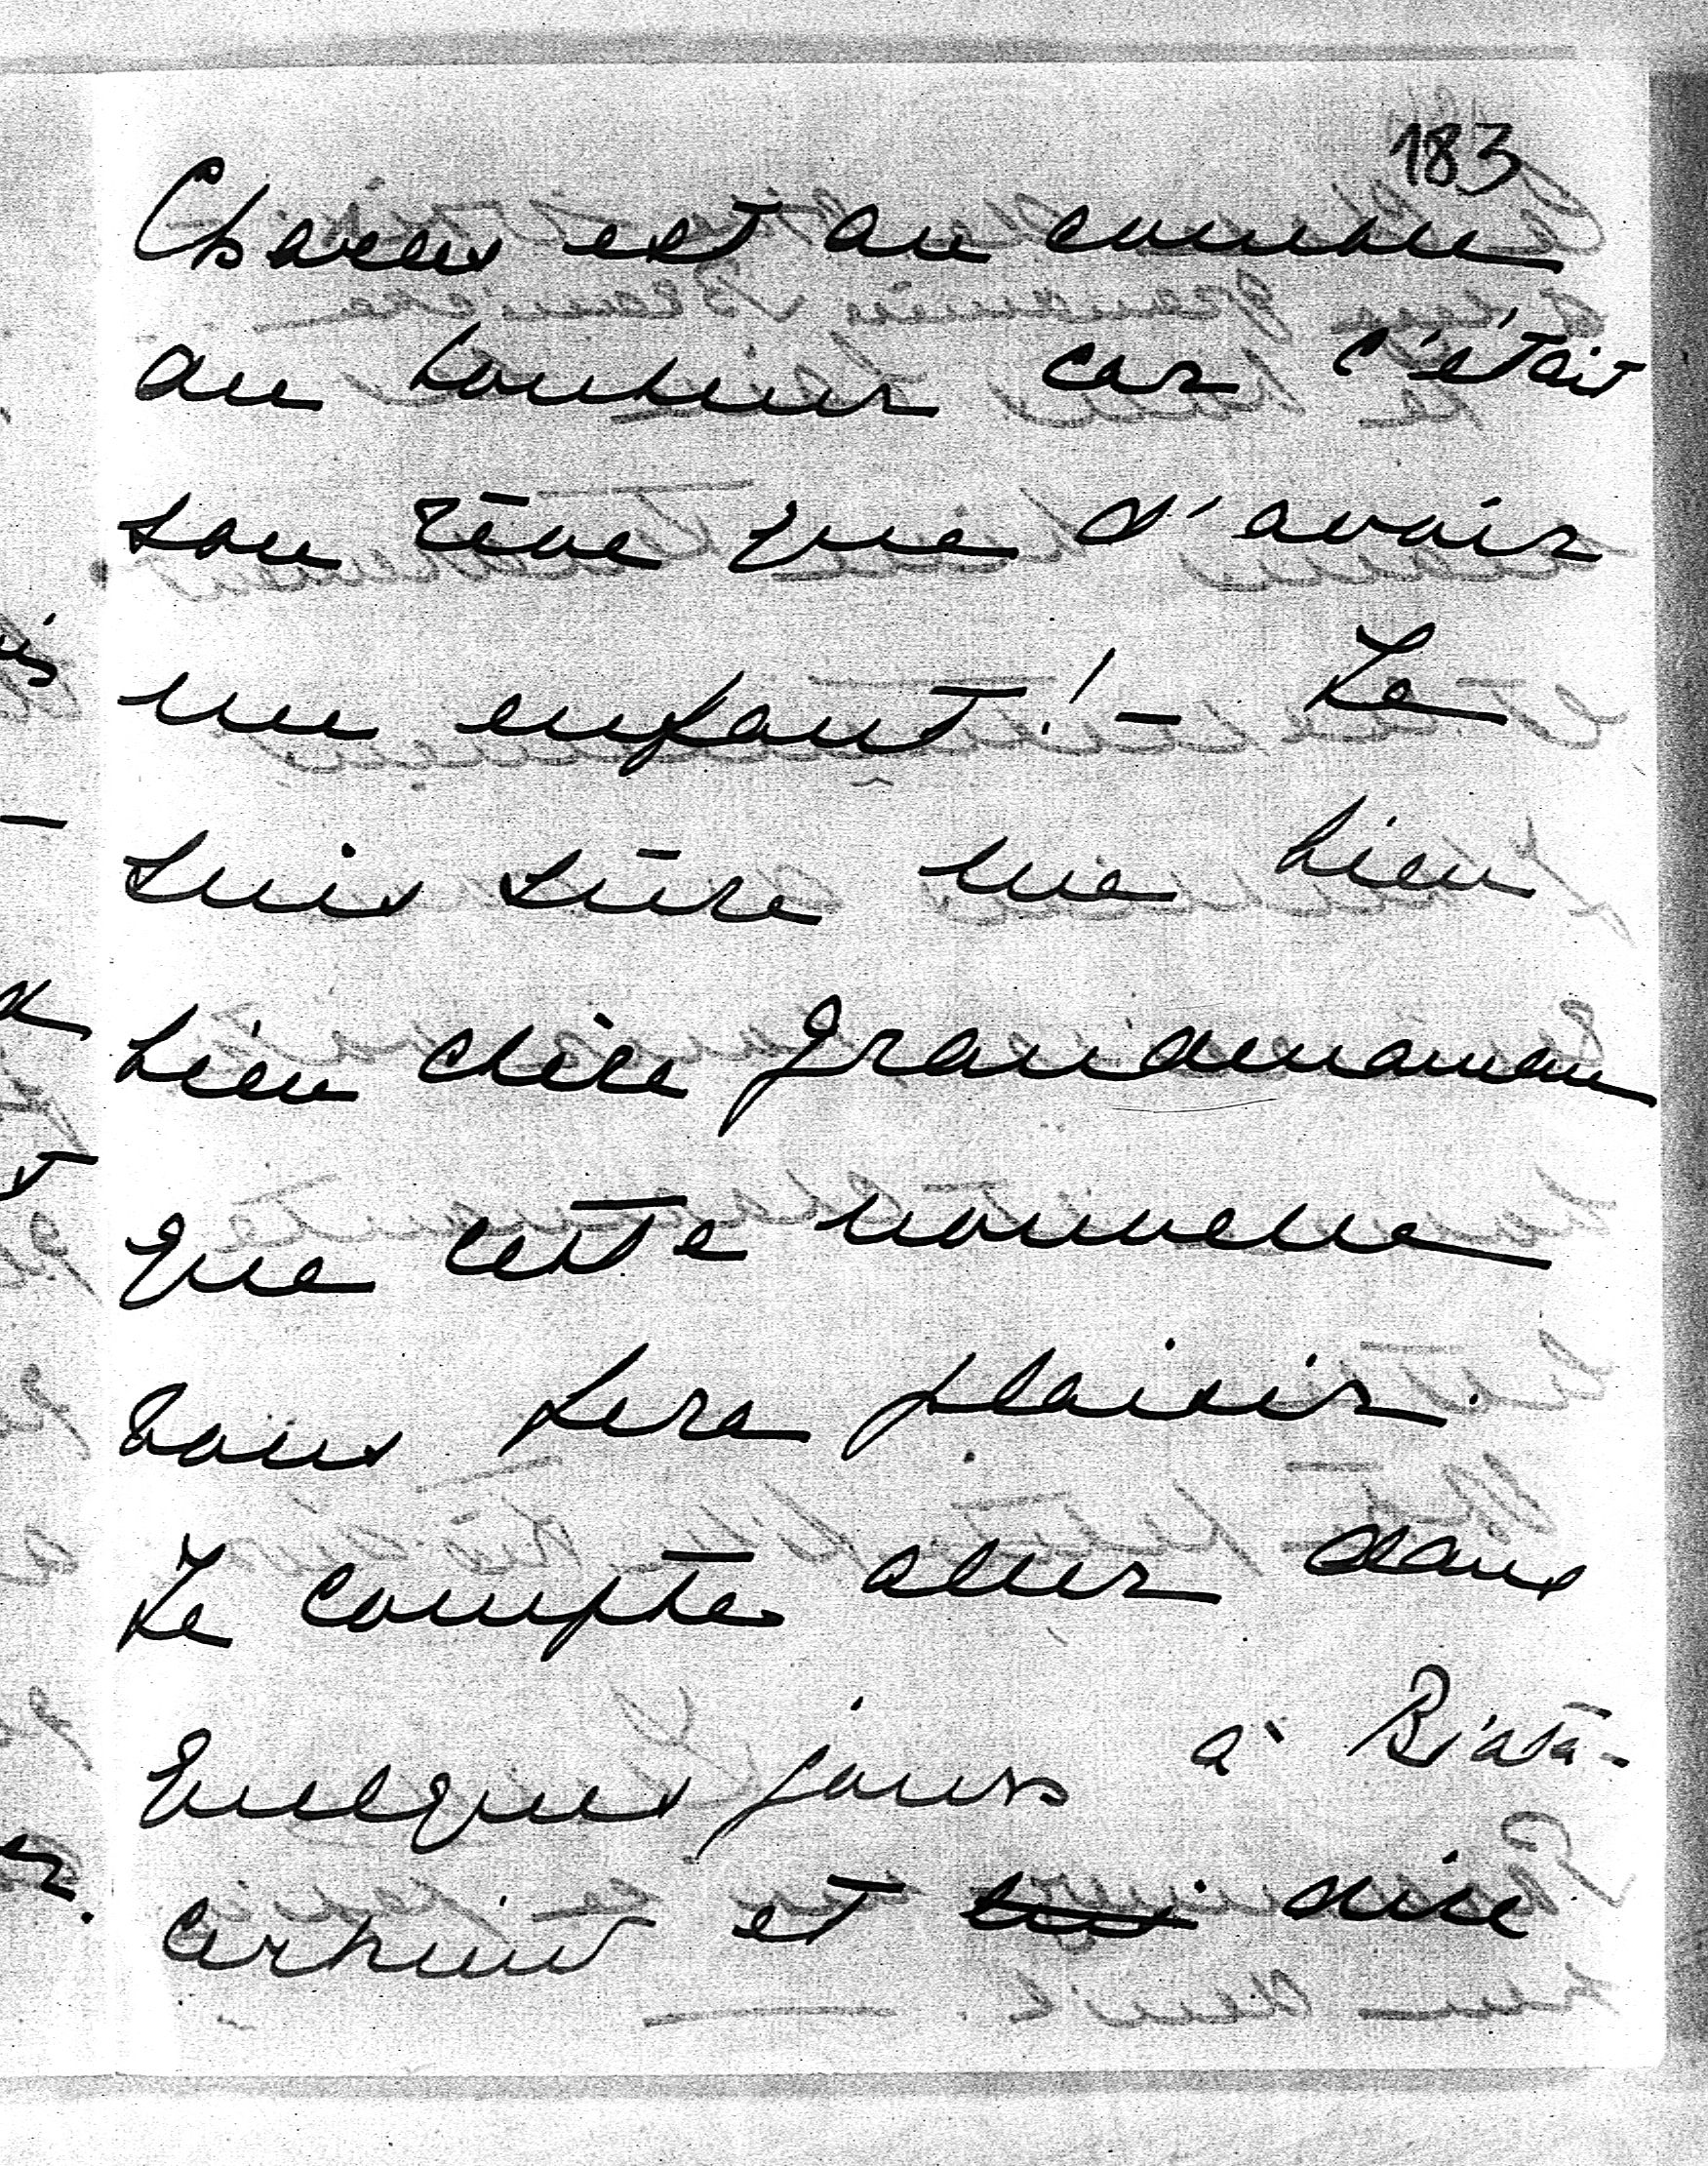 183
Charles est au comble
du bonheur car c'était
son rêve que d'avoir
un enfant! – Je
suis sûre ma bien
bien chère Grandmaman
que cette nouvelle
vous fera plaisir.
Je compte aller dans
quelques jours à
et dire